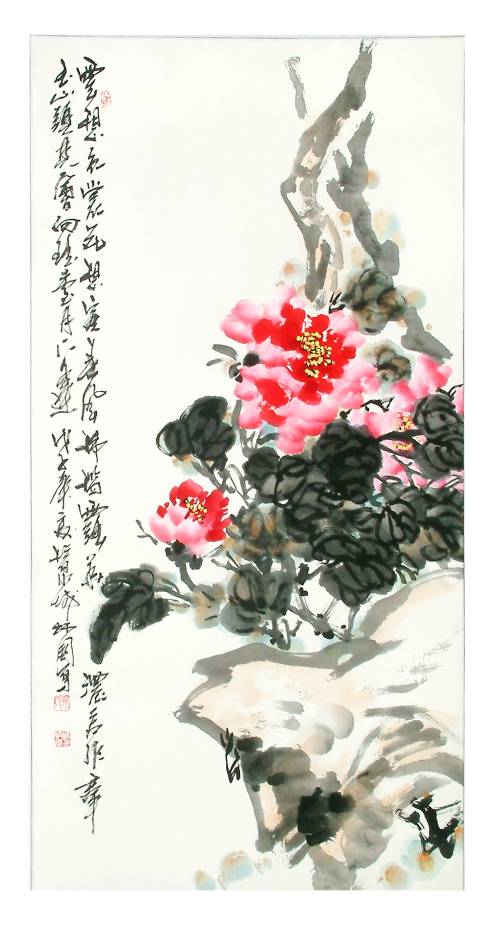 雲想衣裳花想容春風拂檻露華濃若非羣
玉山頭見會向瑤臺月下逢戊子年夏京城